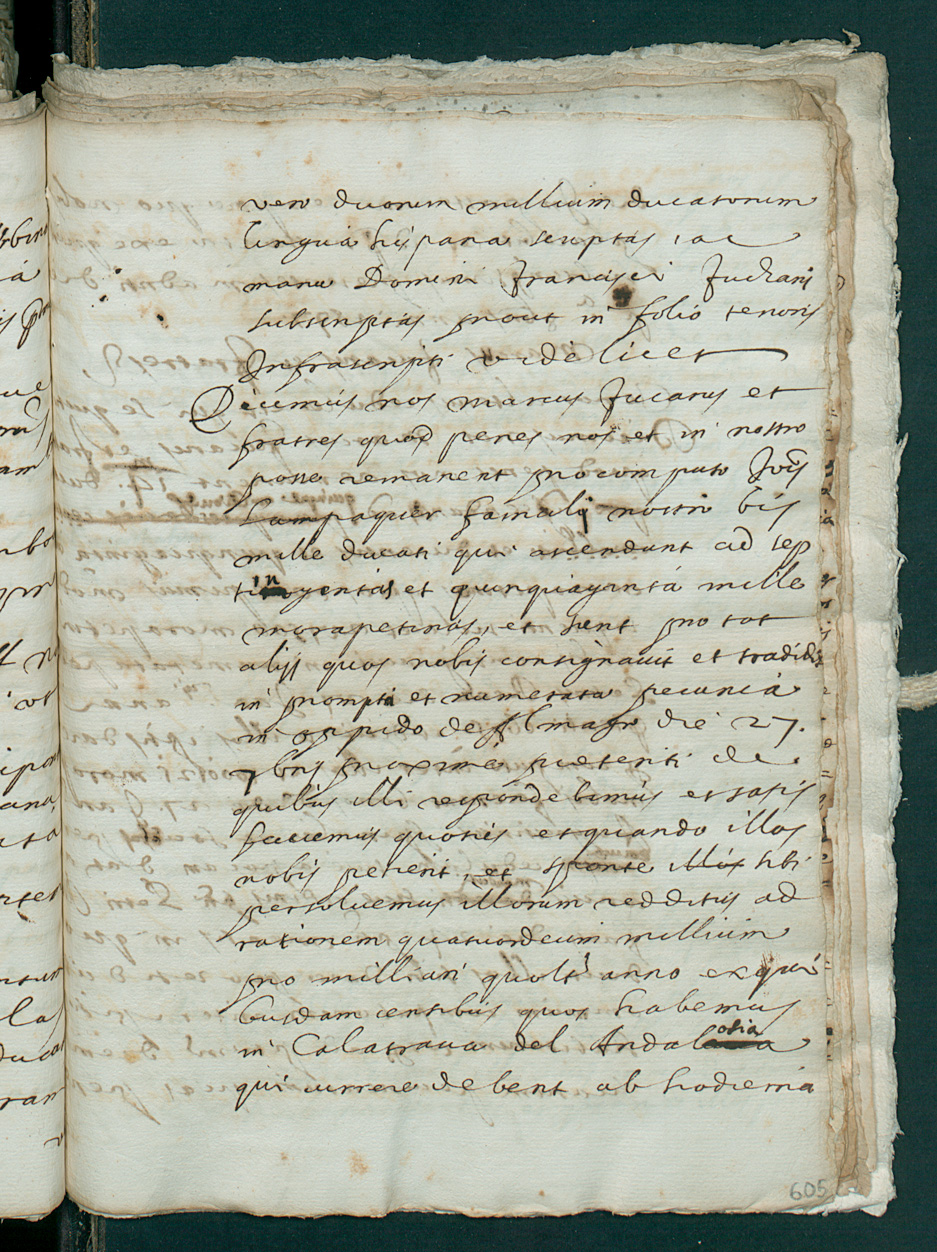 vero duorum millium ducatorum
lingua hispana scriptas, ac
manu Domini Francisci Juchari
subscriptas prout in folio tenoris
Infrascripti videlicet
Dicimus nos Marcus Fucarus et
fratres quod penes nos et in nostro
posse remanent pro computo Jois
Lampaguer familij nostri bis
mille ducati qui ascendunt ad sep
tingentas et quinquaginta mille
morapetinas, et sunt pro tot
alijs quos nobis consignavit et tradidit
in prompta et numerata pecunia
in oppido de Almagr die 27.
7bris proxime preteriti de
quibus illi respondebimus et satis
faciemus quoties et quando illos
nobis petierit, et sponte illis sibi
persoluemus illorum redditus ad
rationem quatuordecim millium
pro milliari quolt anno ex qui
busdam censibus quos habemus
in Calatraua del Andalosia
qui currere debent ab hodierna
605